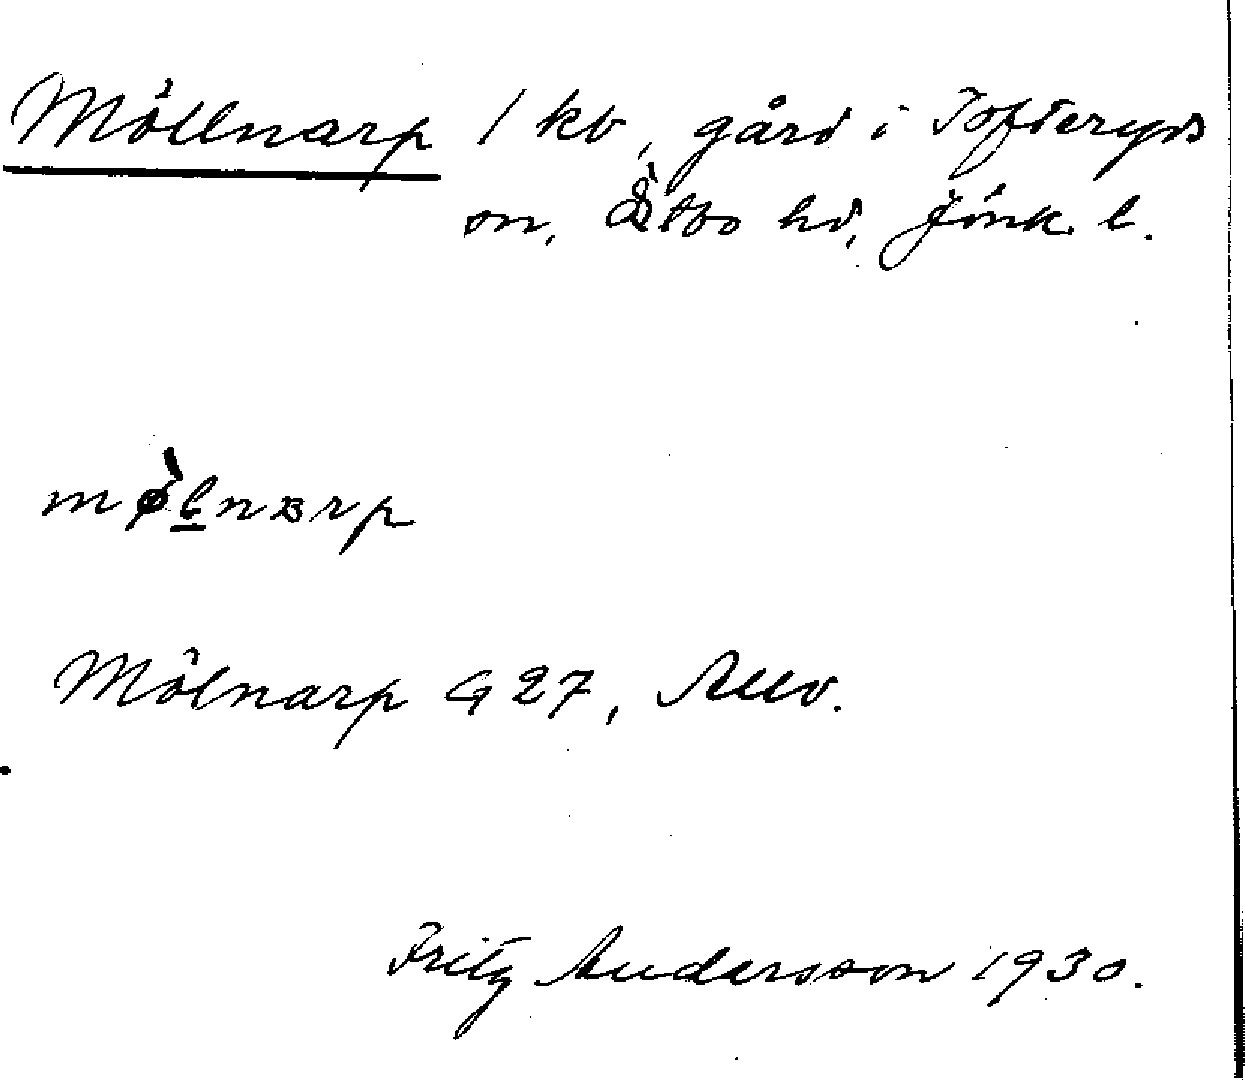 Möllnarp 1 kv, gård i Tofteryds
sn, Östbo hd, Jönk. l.
mø̀lnarp
Mölnarp G 27, Allv.
Fritz Andersson 1930.